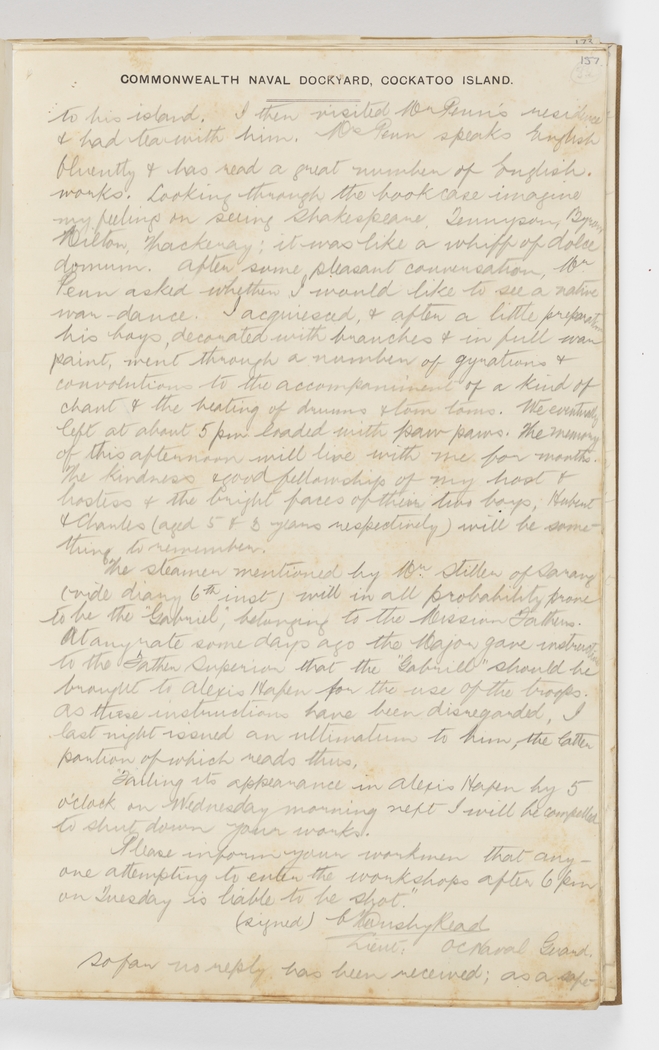 157
COMMONWEALTH NAVAL DOCKYARD, COCKATOO ISLAND.
to his island. I then visited Mr Penn's residence
& had tea with him. Mr Penn speaks English
fluently & has read a great number of English
works. Looking through the book case imagine
my feelings on seeing Shakespeare, Tennyson, Byron
Milton, Thackeray; it was like a whiff of dolce
domum. After some pleasant conversation, Mr
Penn asked whether I would like to see a native
war-dance. I acquiesced, & after a little preparation
his boys, decorated with branches & in full war
paint, went through a number of gyrations &
convolutions to the accompaniment of a kind of
chant & the beating of drums & tom toms. We eventually
left at about 5 pm loaded with paw paws. The memory
of this afternoon will live with me for months.
The kindness & good fellowship of my host &
hostess & the bright faces of their two boys, Hubert
& Charles (aged 5 & 3 years respectively) will be some-
thing to remember.
The steamer mentioned by Mr Stiller of Sarang
(vide diary 6th inst) will in all probability prove
to be the "Gabriel", belonging to the Mission Fathers.
At any rate some days ago the Major gave instructions
to the Father Superior that the "Gabriel" should be
brought to Alexis Hafen for the use of the troops.
As these instructions have been disregarded, I
last night issued an ultimatum to him, the latter
portion of which reads thus,
"Failing its appearance in Alexis Hafen by 5
o'clock on Wednesday morning next I will be compelled
to shut down your works.
Please inform your workmen that any-
one attempting to enter the workshops after 6 pm
on Tuesday is liable to be shot."
(signed) Read
Lieut: OC Naval Guard.
So far no reply has been received; as a